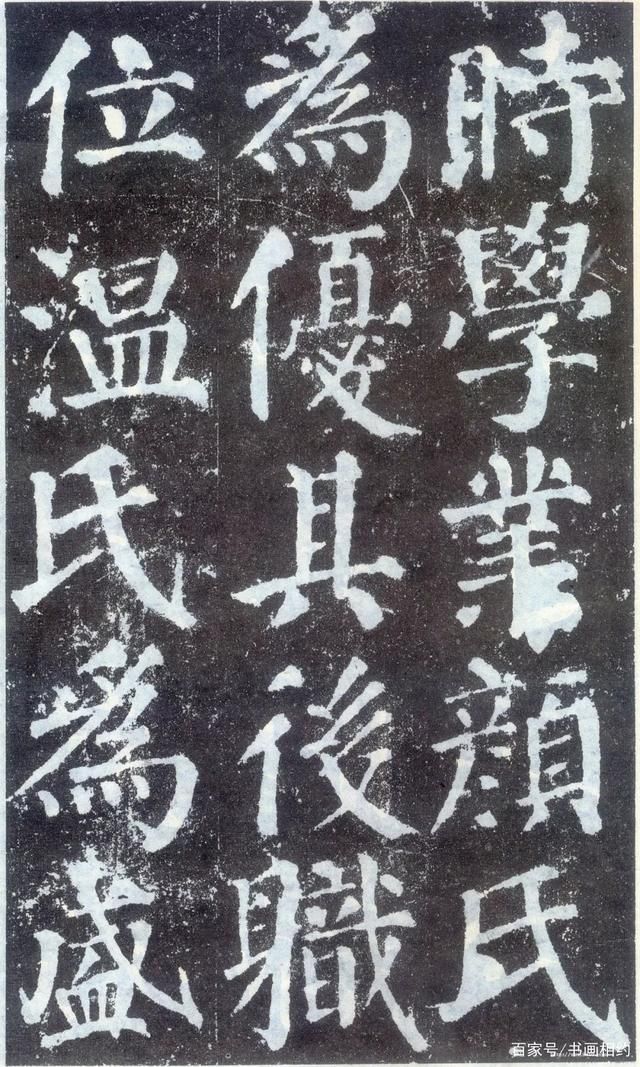 時學業顔氏
為優其後職
位温氏為盛
百家号/书画相约